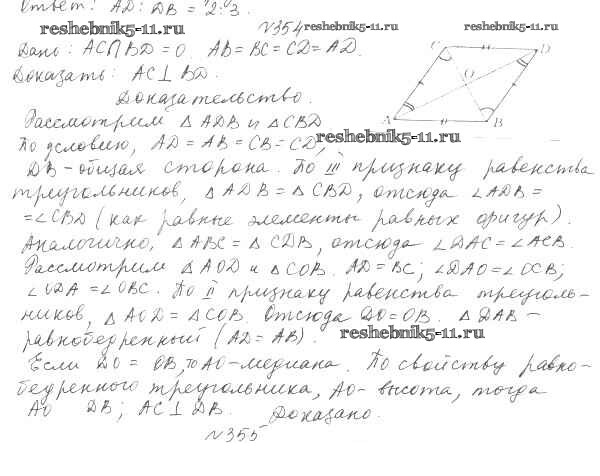 Ответ: AD : DB = 2:3.
reshebnik5-11.ru №354 reshebnik5-11.ru reshebnik5-11.ru
Дано: AC∩BD=O, AB=BC=CD=AD.
Доказать: AC⊥BD.
Доказательство.
Рассмотрим △ADB и △CBD
По условию, AD=AB=CB=CD, reshebnik5-11.ru
DB-общая сторона. По III признаку равенства
треугольников, △ADB=△CBD, отсюда ∠ADB=
=∠CBD (как равные элементы равных фигур).
Аналогично, △ABC=△CDB, отсюда ∠DAC=∠ACB.
Рассмотрим △AOD и △COB. AD=BC; ∠DAO=∠OCB;
∠ODA=∠OBC. По II признаку равенства треуголь-
ников, △AOD=△COB. Отсюда DO=OB. △DAB-
равнобедренный (AD=AB). reshebnik5-11.ru
Если DO=OB, то AO-медиана. По свойству равно-
бедренного треугольника, AO-высота, тогда
AO DB; AC⊥DB. Доказано.
№355
C D
O
A B